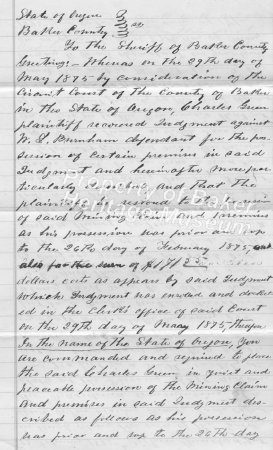 State of Oregon } ss
Baker County }
To the Sheriff of Baker County
Greeting - Whereas on the 29th day of
May 1875 by consideration of the
Circuit Court of the County of Baker
in the State of Oregon, Charles Green
plaintiff recovered Judgment against
Burnham defendant for the pos
session of certain premises in said
Judgment and hereinafter more par
ticularly and that the
plaintiff be restored to the
of said Mining Claim and premises
as his possession was prior and up
to the 26th day of February 1875, and
also for the sum of
dollars costs as appears by said Judgment
which Judgment was enrolled and docket
ed in the Clerks office of said Court
on the 29th day of May 1875,
In the name of the State of Oregon, you
are commanded and required to place
the said Charles Green in quiet and
peaceable possession of the Mining Claim
and premises in said Judgment des
cribed as follows as his possession
was prior and up to the 26th day
Property of Baker
Heritage Museum